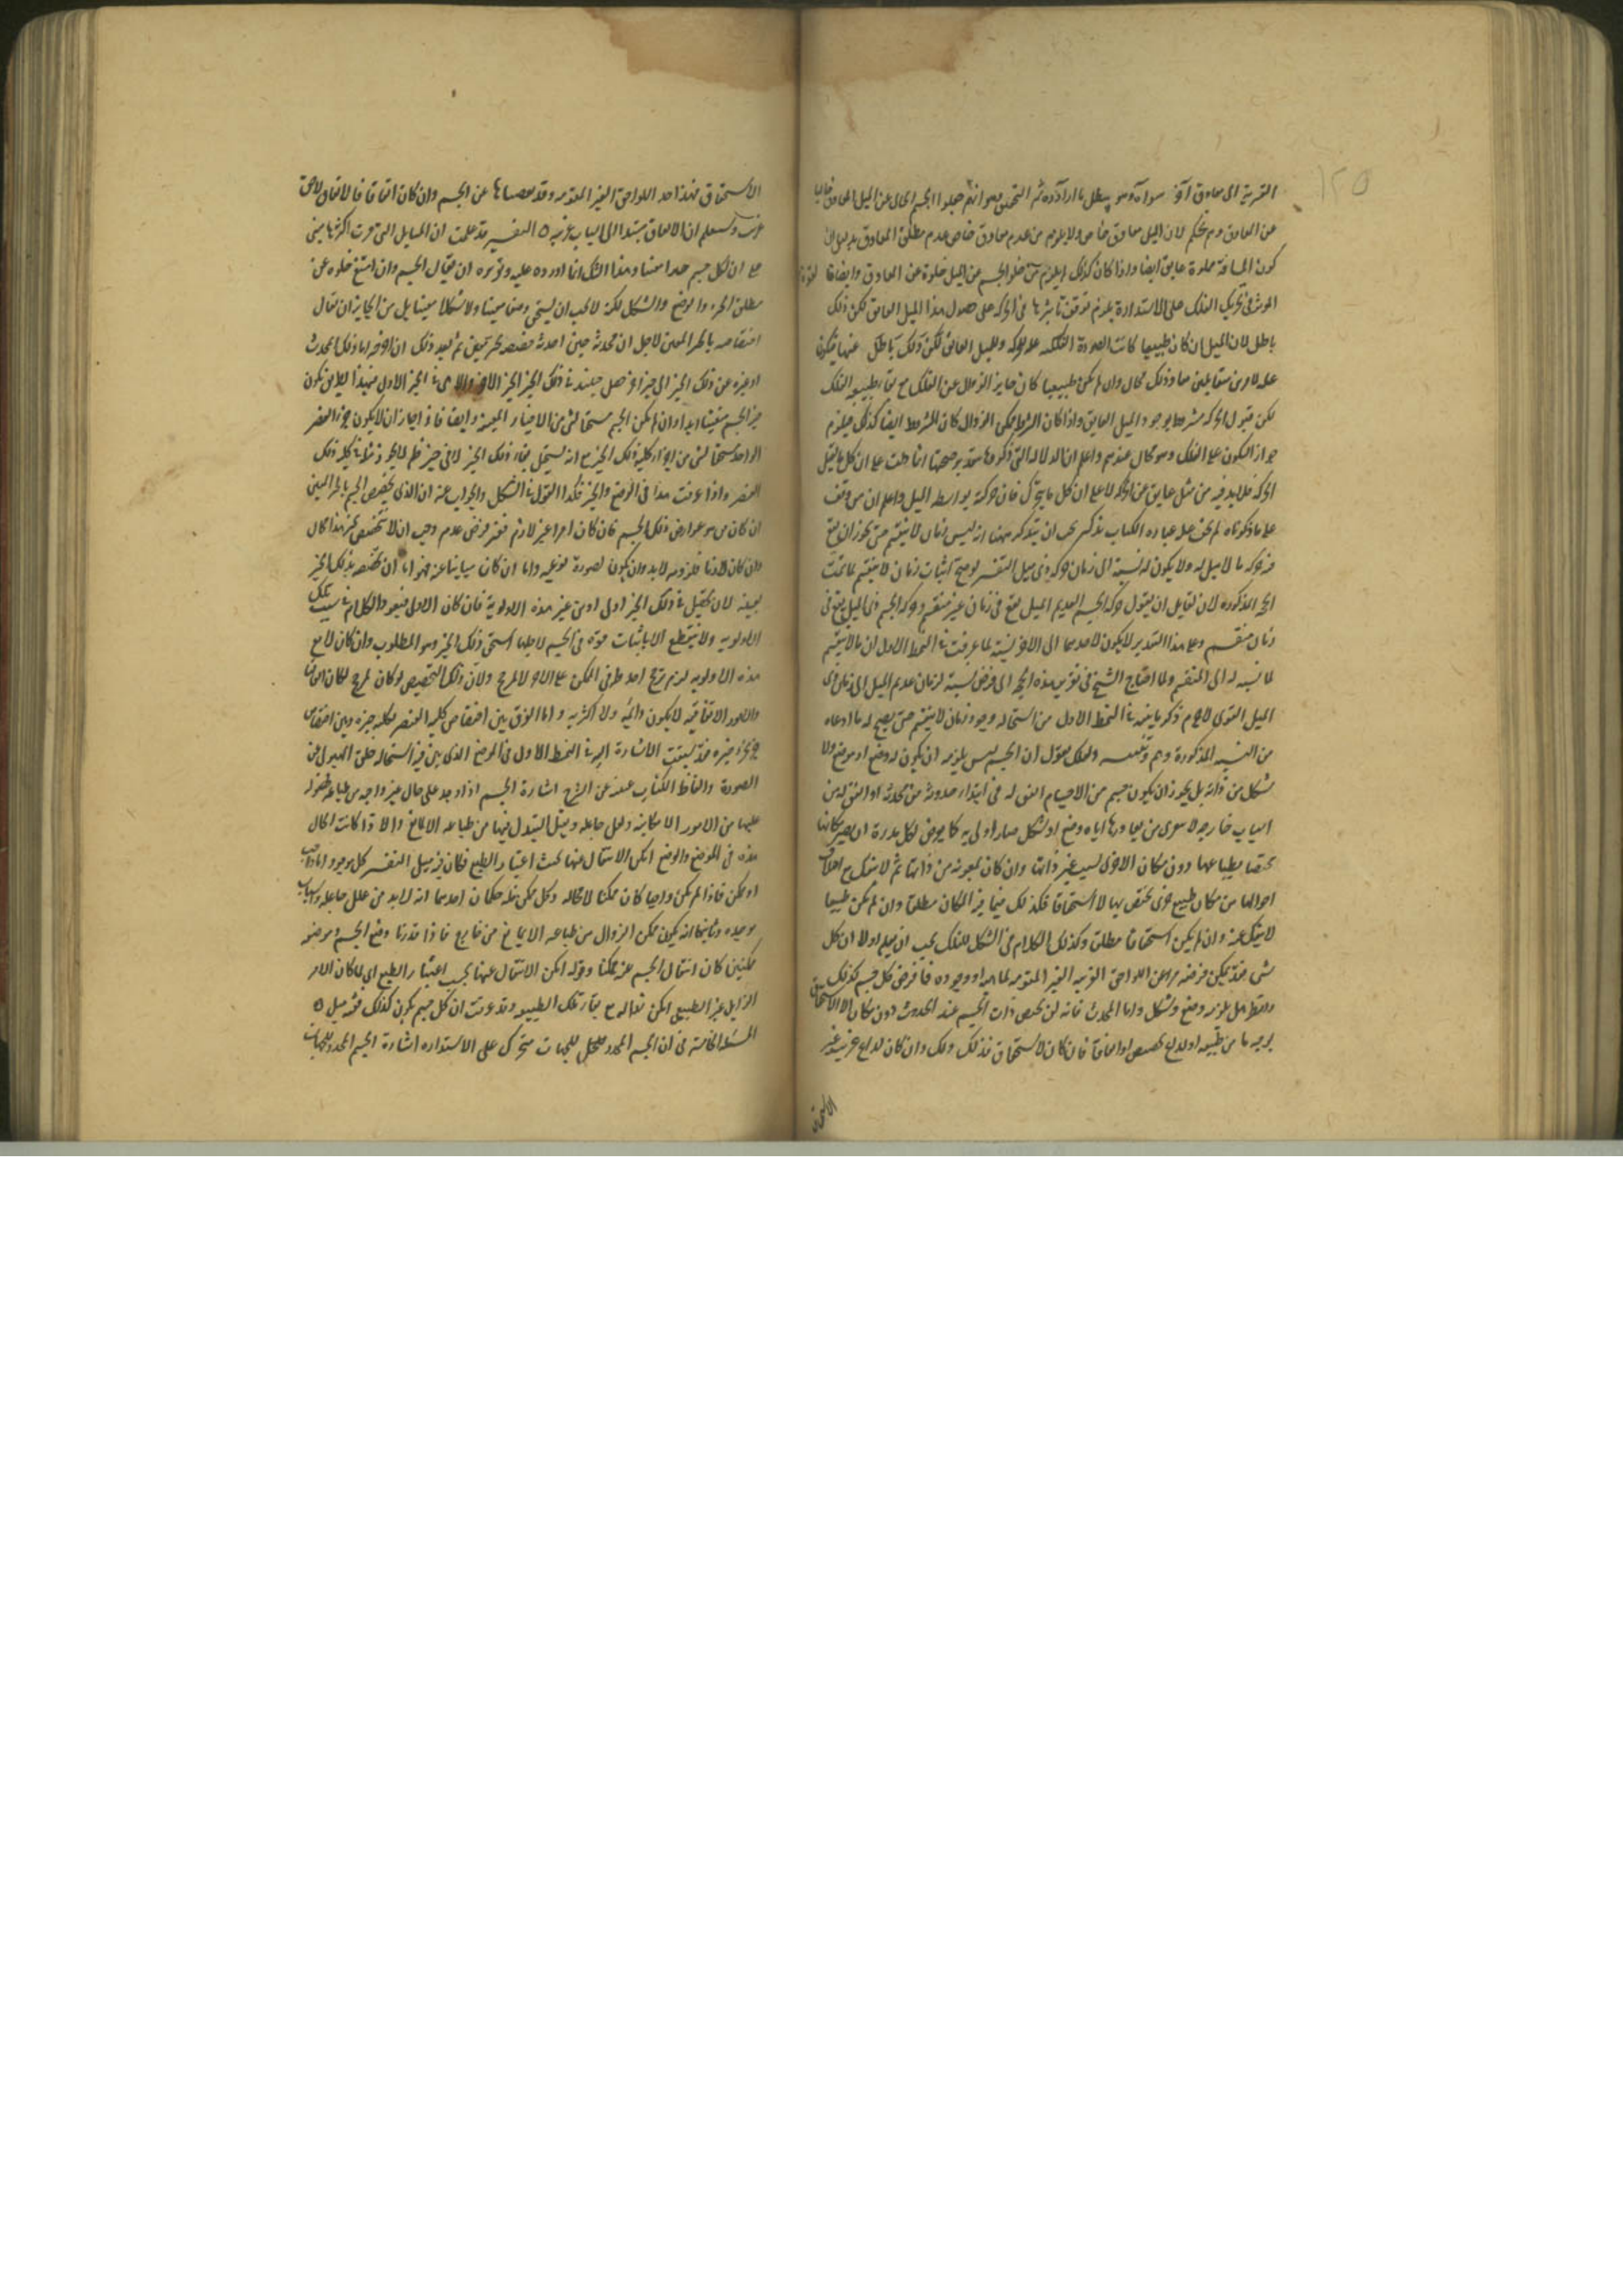 ١٢٥
القريبة الى معاوق آخر سواه وهو يبطل ما اراده ثم التحقيق هو انهم جعلوا الجسم الخالى عن الميل المعاوق خاليا
عن المعاوق وهم تحكم لان الميل معاوق خاص ولا يلزم من عدم معاوق خاص عدم مطلق المعاوق
كون المسافة مملوة عايق ايضا واذا كان كذلك لم يلزم من خلو الجسم عن الميل خلوه عن المعاوق وايضا
المؤثر فى تحريك الفلك على الاستدارة يلزم توقف تاثيرها فى الحركة على حصول هذا الميل العايق لكن ذلك
باطل لان الميل ان كان طبيعيا كانت الصورة الفلكية علة للحركة وللميل العايق لكن ذلك باطل
علة لامرين متقابلين معا وذلك محال وان لم يكن طبيعيا كان جايز الزوال عن الفلك مع بقاء طبيعة الفلك
لكن قبول الحركة مشروط بوجود الميل العايق واذا كان الشرط ممكن الزوال كان المشروط ايضا كذلك فيلزم
جواز السكون على الفلك وهو محال عندهم واعلم ان الدلالة التى ذكروها بتقدير صحتها انما دلت على ان كل ما يقبل
الحركة فلا بد فيه من مثل عايق عن الحركة لا على ان كل ما يتحرك فان حركته بواسطة الميل واعلم ان من وقف
على ما ذكرناه لم يخف عليه عبارة الكتاب تذكير يجب ان يتذكر ههنا انه ليس زمان لا ينقسم حتى يجوز ان يقع
فيه حركة ما لا ميل له ولا يكون له نسبة الى زمان حركة ذى ميل التفسير لو صح اثبات زمان لا ينقسم لما تمت
الحجة المذكورة لان لقايل ان يقول حركة الجسم العديم الميل يقع فى زمان غير منقسم وحركة الجسم ذى الميل يقع فى
زمان منقسم وعلى هذا التقدير لا يكون لاحدهما الى الاخر نسبة لما عرفت فى النمط الاول ان ما لا ينقسم
لا نسبة له الى المنقسم ولما احتاج الشيخ فى تقرير هذه الحجة الى فرض نسبة لزمان عديم الميل الى زمان ذى
الميل القوى لا جرم ذكر ما بينه فى النمط الاول من استحالة وجود زمان لا ينقسم حتى يصح له ما ادعاه
من النسبة المذكورة وهم وتنبيه ولعلك تقول ان الجسم ليس يلزمه ان يكون له وضع او موضع ولا
شكل من ذاته بل يجوز ان يكون جسم من الاجسام اتفق له فى ابتداء حدوثه من محدثه او اتفق له من
اسباب خارجة لا يعرى من تعاورها اياه وضع او شكل صار اولى به كما يعرض لكل مدرة ان يصير مكانها
مختصا بطباعها دون مكان الاخرى لسبب غير ذاتها وان كان بمعونة من ذاتها ثم لا ينفك مع اختلاف
احوالها من مكان طبيعى جزئى تختص بها لا استحقاقا فكذلك فيما نحن المكان مطلقا وان لم يكن طبيعيا
لا ينفك عنه وان لم يكن استحقاقا مطلقا وكذلك الكلام فى الشكل للفلك يجب ان تعلم اولا ان كل
شى فقد يمكن فرضه مبراء عن اللواحق الغريبة الغير المقومة لماهيته او وجوده فافرض كل جسم كذلك
وانظر هل يلزمه وضع وشكل واما المحدث فانه لن يخص ذات الجسم عند الحدوث دون مكان الا الاستحقاق
بوجه ما من طبيعة او لداع مخصص او اتفاقا فان كان لاستحقاق فذلك ذلك وان كان لداع غريب غير
الاستحقاق
الاستحقاق فهذا احد اللواحق الغير المقومة وقد نفيناها عن الجسم وان كان اتفاقا فالاتفاق لاحق
غريب وستعلم ان الاتفاق يستند الى اسباب غريبة ٥ التفسير قد علمت ان المسايل التى مرت اكثرها مبنى
على ان لكل جسم حيزا معينا وهذا الشك انما اورده عليه وتقريره ان يقال الجسم وان امتنع خلوه عن
مطلق الحيز والوضع والشكل لكنه لا يجب ان يستحق وضعا معينا ولا شكلا معينا بل من الجايز ان يقال
اختصاصه بالحيز المعين لاجل ان محدثه حين احدثه خصصه بحيز معين ثم بعد ذلك ان اخرجه اما ذلك المحدث
او غيره عن ذلك الحيز الى حيز اخر حصل حينئذ فى ذلك الحيز الحيز الاخر والا بقى فى الحيز الاول فهذا الطريق يكون
حيز الجسم متعينا ابدا وان لم يكن الجسم مستحقا لشى من الاحياز المعينة وايضا فاذا جاز ان لا يكون جزء العنصر
الواحد مستحقا لشى من اجزاء كلية ذلك الحيز مع انه يستحيل بقاء ذلك الجزء لا فى حيز فلم لا يجوز مثله فى كلية ذلك
العنصر واذا عرفت هذا فى الوضع والحيز فكذا القول فى الشكل والجواب عنه ان الذى يخصص الجسم بالحيز المعين
ان كان من عوارض ذلك الجسم فان كان امرا غير لازم فعند فرض عدمه وجب ان لا يختص بحيز هذا محال
وان كان لازما فلزومه لا بد وان يكون لصورة نوعية واما ان كان مباينا عنه فهو اما ان يختصه بذلك الحيز
بعينه لان تحصيل فى ذلك الحيز اولى او من غير هذه الاولوية فان كان الاول فيعود الكلام فى سبب تلك
الاولوية ولا ينقطع الا باثبات قوة فى الجسم لاجلها استحق ذلك الحيز وهو المطلوب وان كان لا مع
هذه الاولوية لزم ترجح احد طرفى الممكن على الاخر لا لمرجح ولان ذلك التخصيص لو كان لا لمرجح لكان اتفاقيا
والامور الاتفاقية لا يكون دائمة ولا اكثرية واما الفرق بين اختصاص كلية العنصر بكلية حيزه وبين اختصاص
جزء بجزء حيزه فقد سبقت الاشارة اليه فى النمط الاول فى الموضع الذى بين فيه استحالة خلو الهيولى عن
الصورة والفاظ الكتاب غنية عن الشرح اشارة الجسم اذا وجد على حال غير واجبة من طباعه فحصوله
عليها من الامور الامكانية ولعلل جاعلة ويقبل التبدل فيها من طباعه الا لمانع واذا كانت الحال
هذه فى الموضع والوضع امكن الانتقال عنها بحسب اعتبار الطبع فكان فيه ميل التفسير كل موجود اما واجب
او ممكن فاذا لم يكن واجبا كان ممكنا لا محالة وكل ممكن فله حكمان احدهما انه لا بد من علل جاعلة واسباب
موجدة وثانيهما انه يكون ممكن الزوال من طباعه الا لمانع من خارج فاذا قدرنا وضع الجسم وموضعه
ممكنين كان انتقال الجسم عنه ممكنا وقوله امكن الانتقال عنها بحسب اعتبار الطبع اى لما كان الامر
الزايل غير الطبيعى امكن زواله مع بقاء تلك الطبيعة وقد عرفت ان كل جسم يكون كذلك ففيه ميل ٥
المسئلة الخامسة فى ان الجسم المحدد للجهات متحرك على الاستدارة اشارة الجسم المحدد للجهات